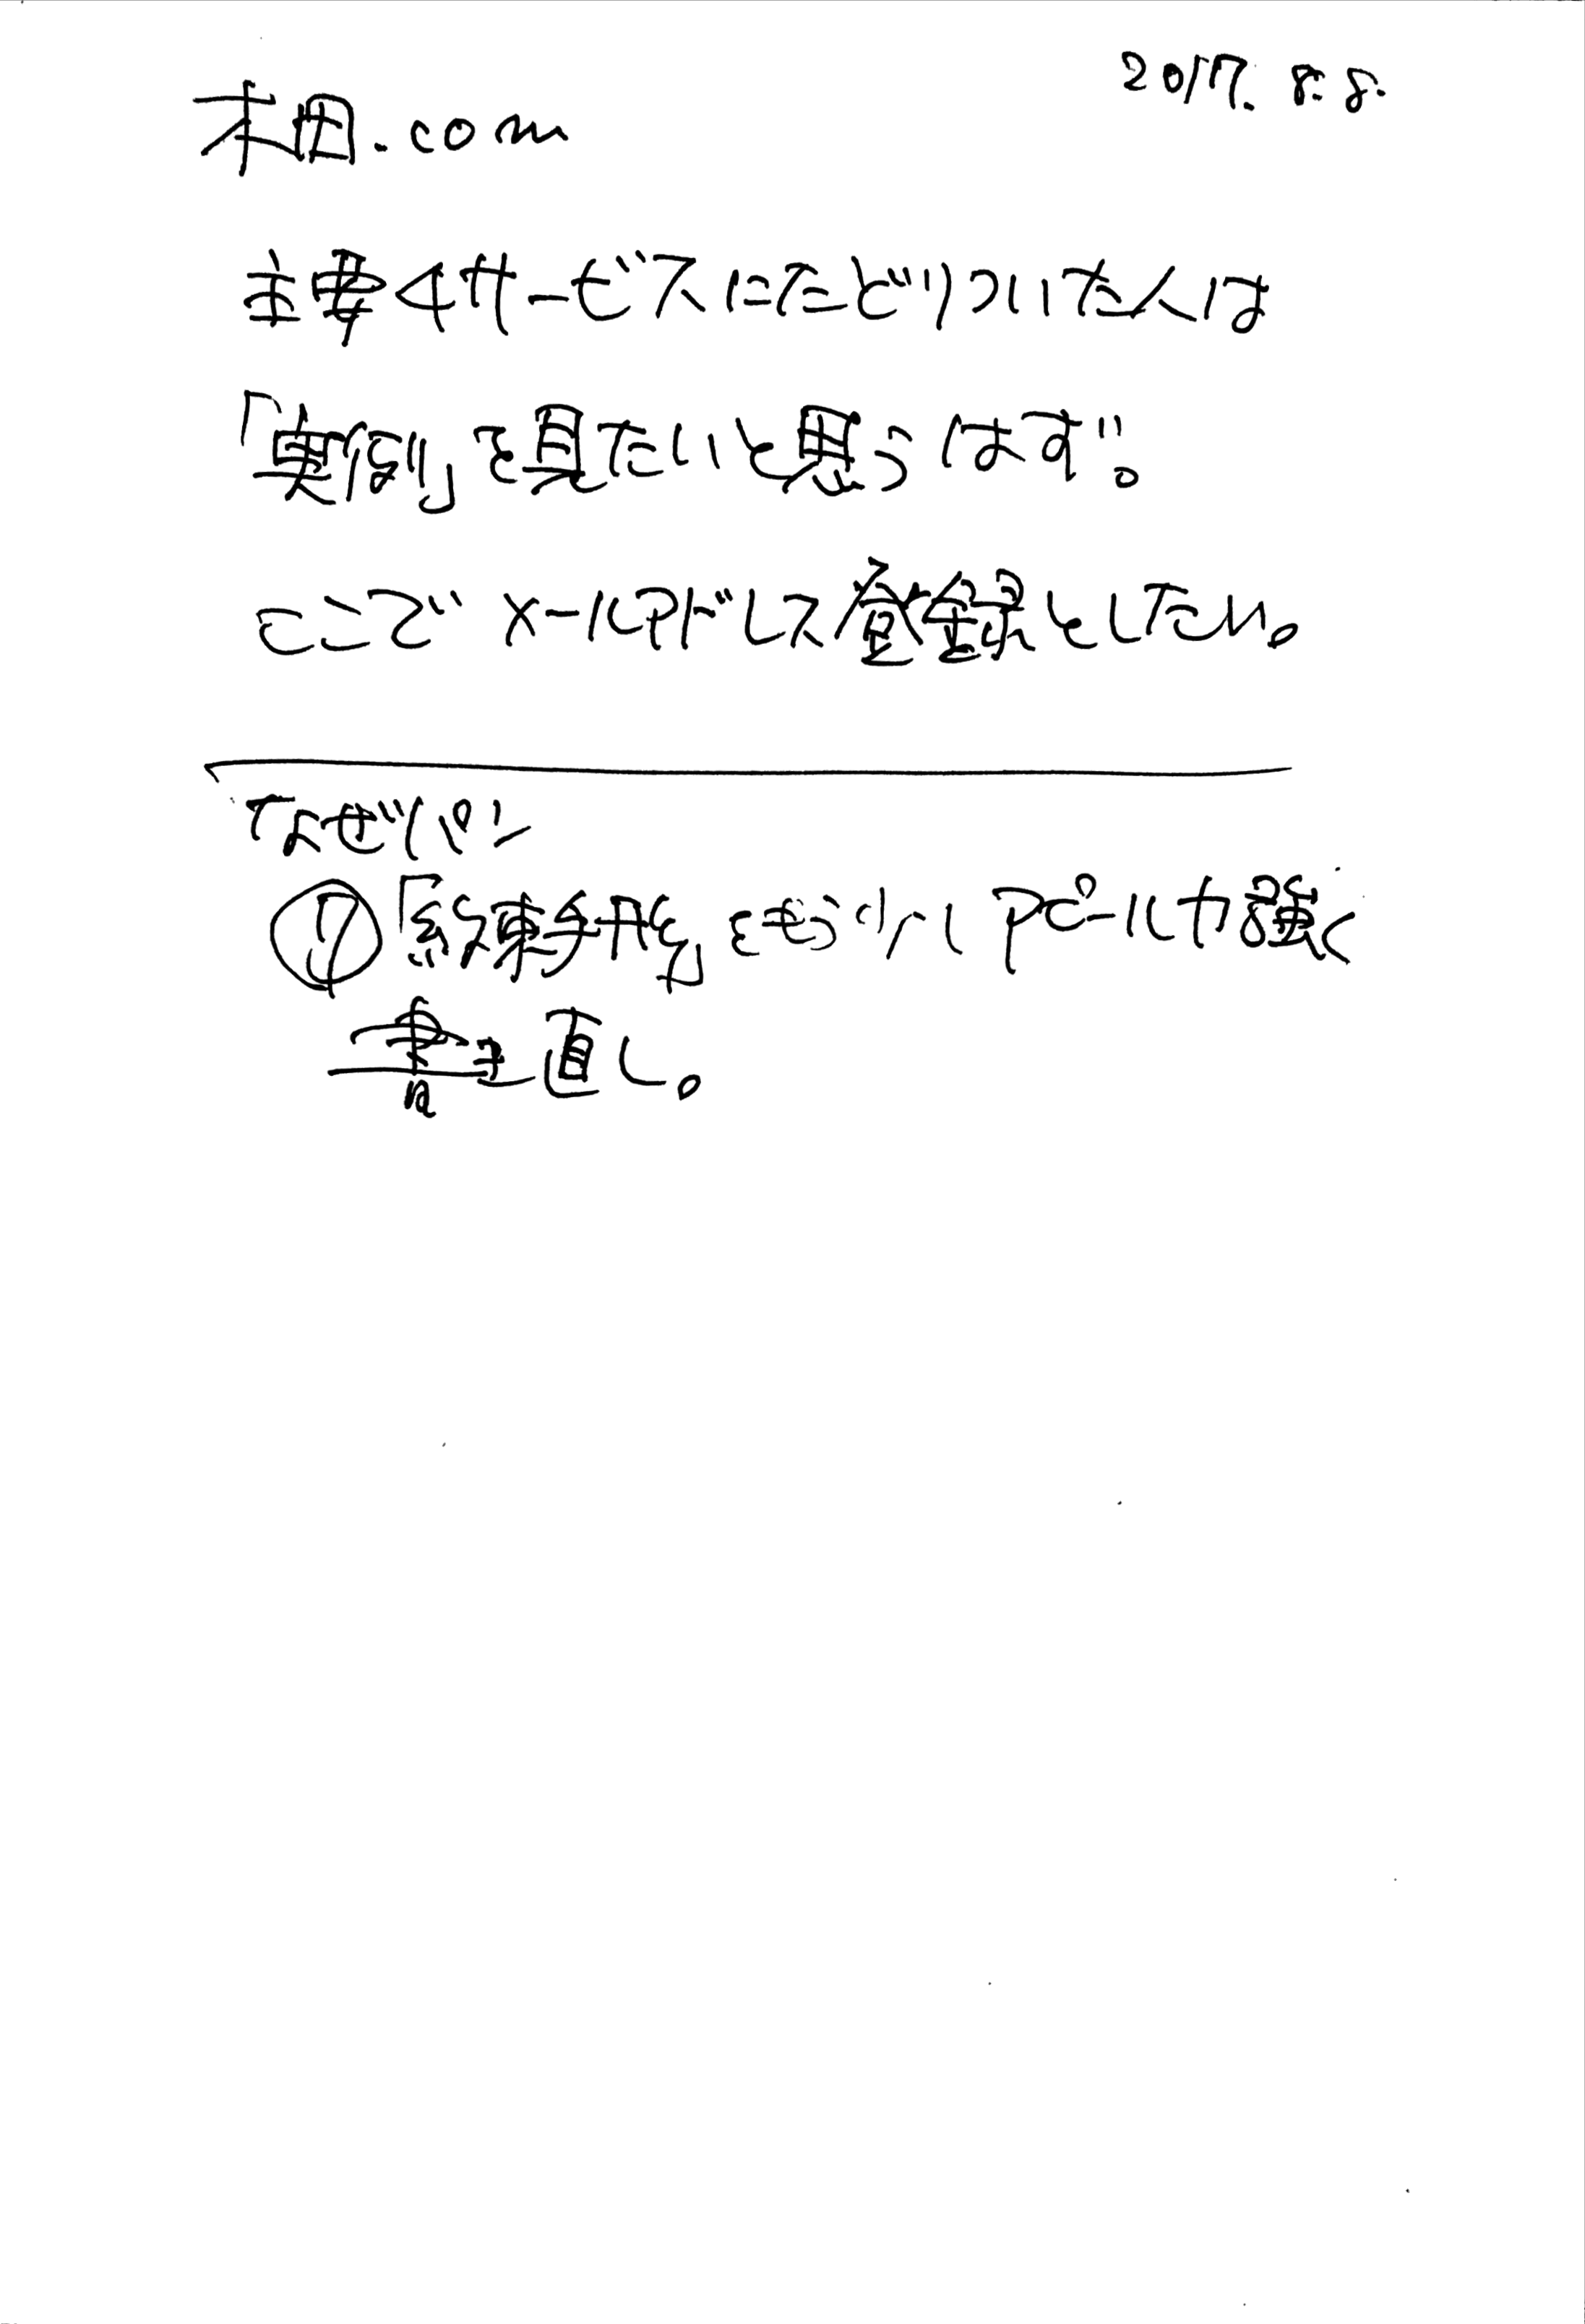 2017. 8. 8.
本田.com
主要4サービスにたどりついた人は
「実例」を見たいと思うはず。
ここでメールアドレス登録としたい。
なぜパン
⑦「約束手形」をもう少しアピール力強く
書き直し。